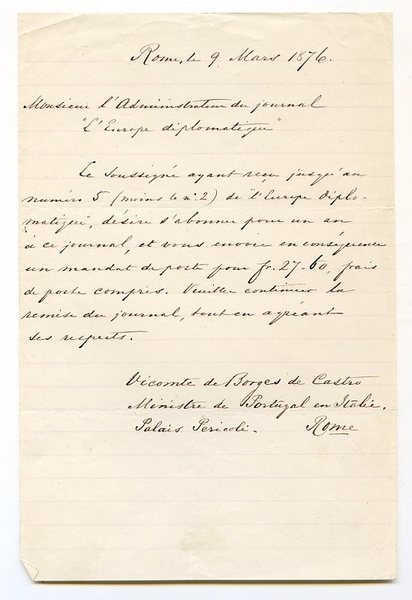 Rome, le 9 Mars 1876.
Monsieur l'Administrateur du journal
"L'Europe diplomatique"
Le Soussigné ayant reçu jusqu'au
numéro 5 (moins le nº 2) de "l'Europe diplo-
matique", désire s'abonner pour un an
à ce journal, et vous envoie en conséquence
un mandat de poste pour fr. 27-60, frais
de poste compris. Veuillez continuer la
remise du journal, tout en agréant
ses respects.
Vicomte de Borges de Castro
Ministre de Portugal en Italie.
Palais Pericoli. Rome